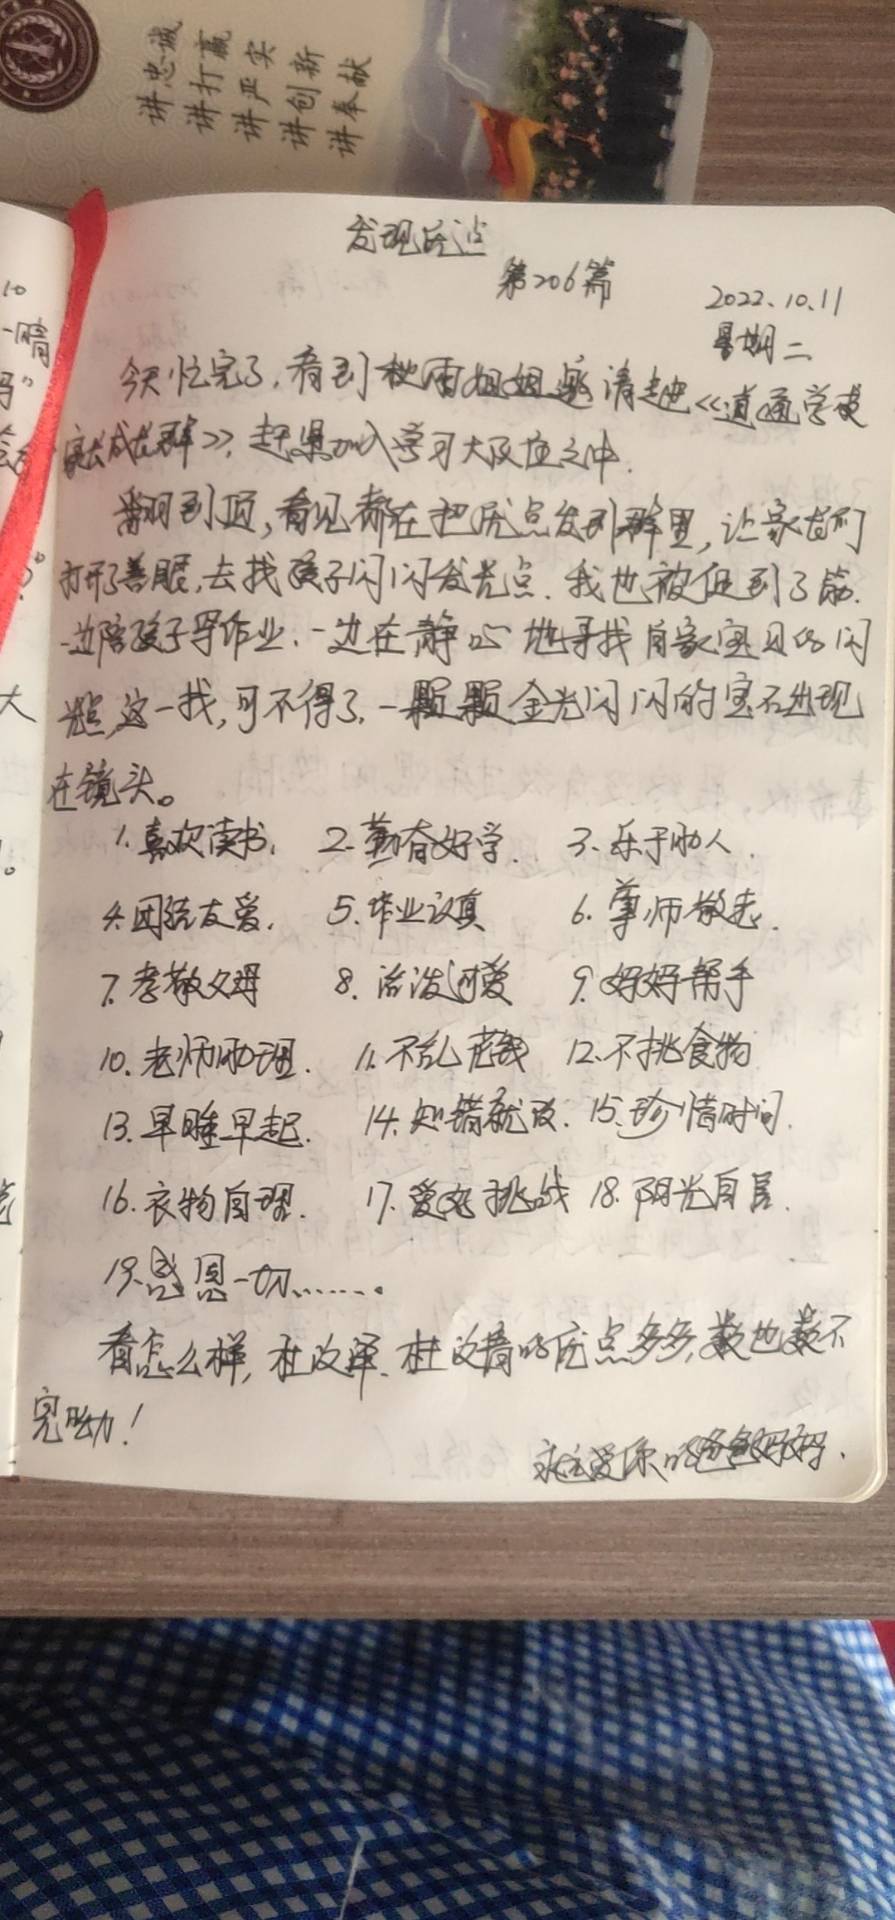 讲忠诚
讲打赢
讲严实
讲创新
讲奉献
发现优点
第206篇
2022.10.11
星期二
今天忙完了,看到秋雨姐姐邀请进《道通学校
家长成长群》,赶紧加入学习大队伍之中.
翻到顶,看见都在把优点发到群里,让家长们
打开了善眼,去找孩子闪闪发光点.我也被促到了
一边陪孩子写作业.一边在静心地寻找自家宝贝的闪
光点,这一找,可不得了,一颗颗金光闪闪的宝石出现
在镜头。
1.喜欢读书. 2.勤奋好学. 3.乐于助人.
4.团结友爱. 5.作业认真 6.尊师敬老.
7.孝敬父母 8.活泼可爱 9.妈妈帮手
10.老师助理. 11.不乱花钱 12.不挑食物
13.早睡早起. 14.知错就改. 15.珍惜时间.
16.衣物自理. 17.爱过挑战 18.阳光自信.
19.感恩一切.......
看怎么样,杜汶泽.杜汶倩的优点多多,数也数不
完呦!
永远爱你的爸爸妈妈.